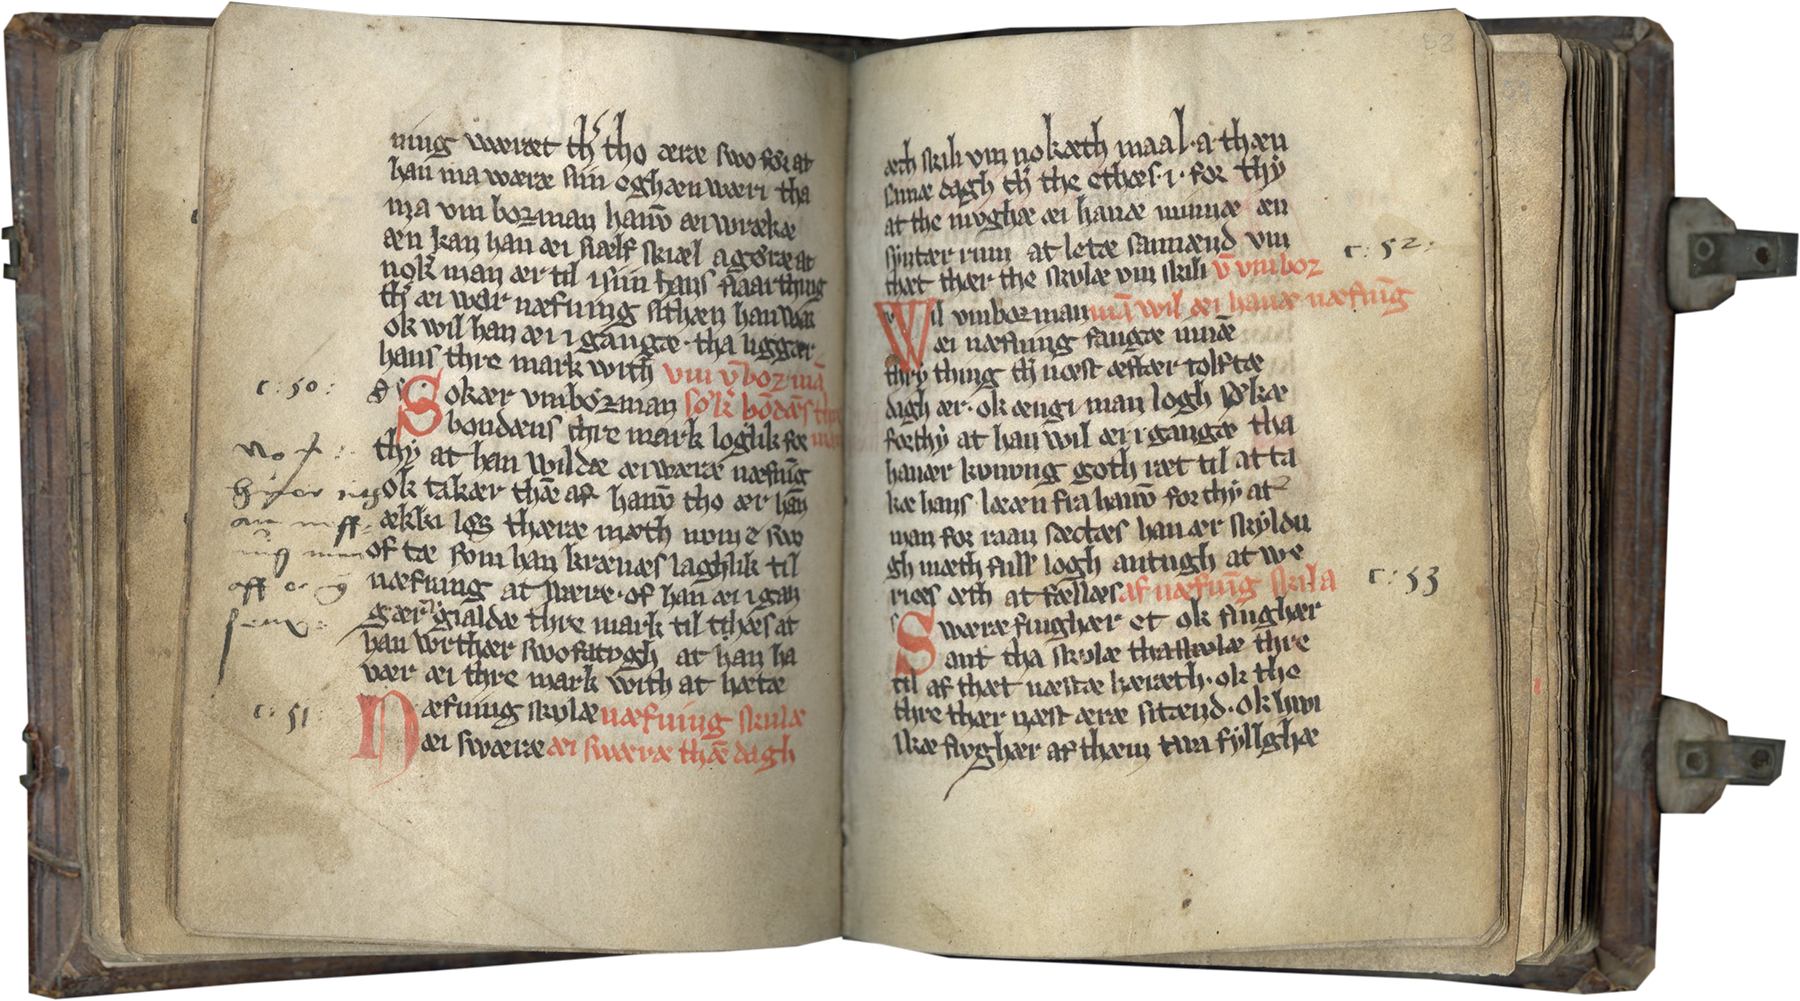 ning wæræt th̄ tho æræ swo for at
han ma wæræ sin eghæn wæri tha
ma vm bozman hanō æi wrækæ
æn kan han æi siælf skiæl a gøræ at
nok man ær til i sin hans fiaarthing
th̄ æi war næfning sithæn han war
ok wil han æi i gangæ · tha liggær
hans thre mark with vm v̄boz mā
c : 50 :
Sokær vmbozman søk̄ bōdæs thre
bondæns thre mark loghlik for mark
thy at han wildæ æi wæræ næfnīg
ok takær thæ̅ af hanō tho ær han̄
ækki løs thæræ mæth num e swo
of tæ som han krænæs laghlik til
næfning at swere · of han æi i gan
gær gialdæ thre mark til thæs at
han wrthær swo fatugh at han ha
vær æi thre mark with at hætæ
c : 51 :
Næfning skulæ næfning skulæ
æi swæræ æi swæræ thæ̅ dagh
53
æth skili vm nokæth maal · a thæn
samæ dagh th̄ the ethæs · i · for thy
at the mughæ æi hauæ minnæ æn
fyntær rum at letæ sannænd vm
thæt thær the skulæ vm skili v̄ vmboz
c : 52 :
Wil vmbozman mā wil æi hauæ næfnīg
æi næfning fangæ innæ̅
thry thing th̄ næst æftær tolftæ
dagh ær · ok ængi man logh søkæ
for thy at han wil æi i gangæ tha
hauær konung goth ræt til at ta
kæ hans lææn fra hanō for thy at
man for raan sæctæs han ær skyldu
gh mæth full logh antugh at we
riæs æth at fællæs af næfnīg skula
c : 53
Swæræ finghær et ok finghær
ant tha skulæ tha skulæ thre
til af thæt næstæ hæræth · ok the
thre thær næst æræ sitænd · ok hwi
lkæ flyghær af thæm twa fyllghæ